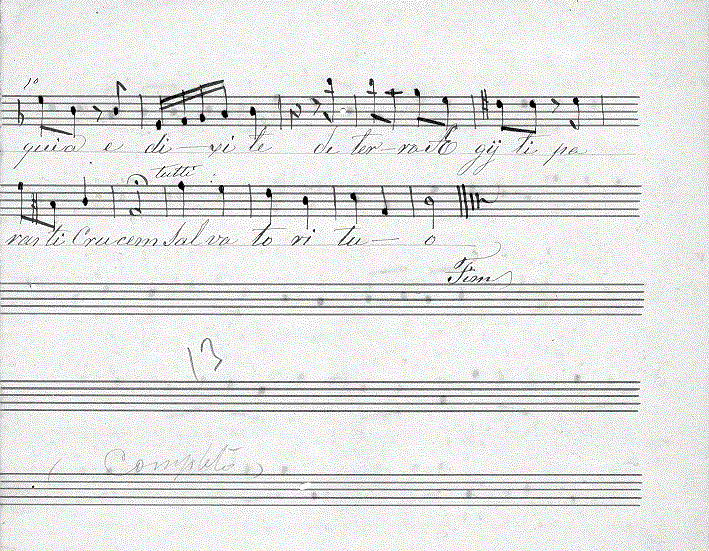 10
quia e di-xi te de ter-ra E gij ti pa
tutti
rasti Crucem Sal va to ri tu-o
Fim
13
(Completo)